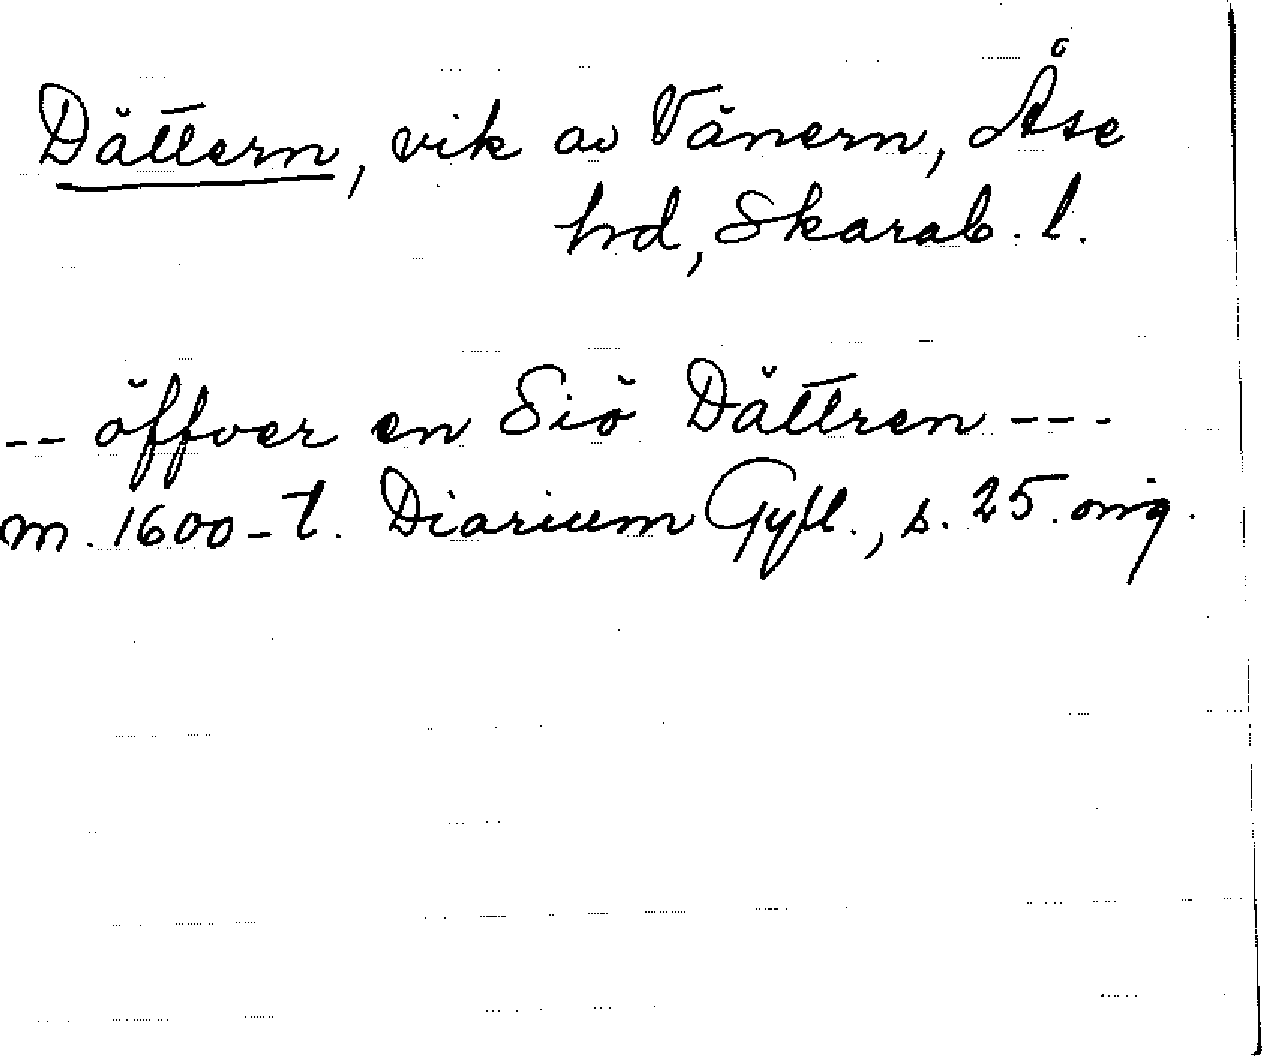 Dättern, vik av Vänern, Åse
hd, Skarab. l.
-- öffver en Siö Dättren ---
m. 1600-t. Diarium Gyll., s. 25. orig.